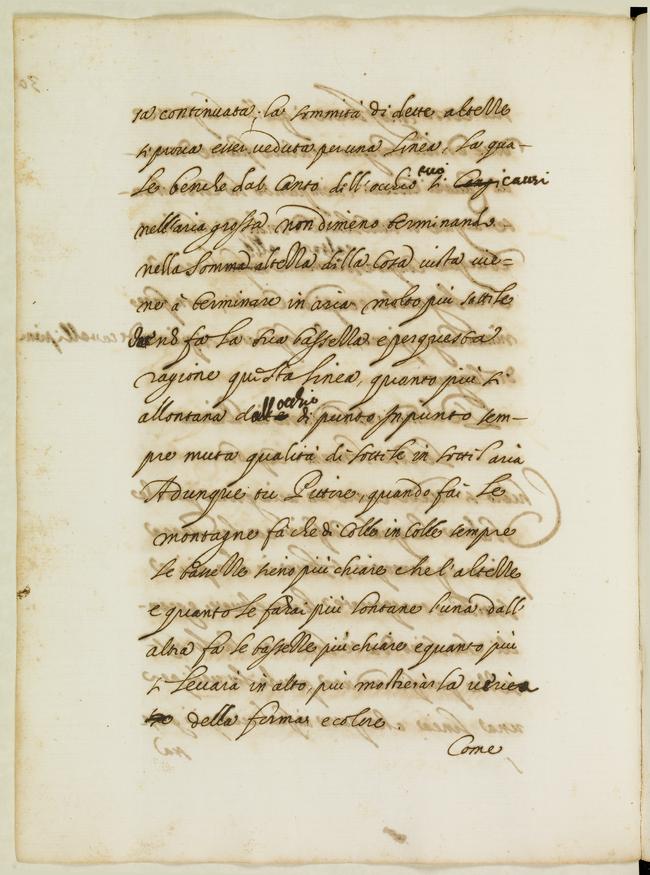 sa continuata; la sommità di dette altezze
si prova esser veduta per una linea, la qua-
le benche dal canto dell'occhio tuo si causi
nell'aria grossa nondimeno terminando
nella somma altezza della cosa vista vie-
ne à terminare in aria molto più sottile
che nō fa la sua bassezza e per questa
ragione questa linea, quanto più si
allontana dall occhio di punto in punto sem-
pre muta qualità di sottile in sottil aria
Adunque tu Pittore, quando fai le
montagne fa che di colle in colle sempre
le bassezze sieno più chiare che l'altezze
e quanto le farai più lontane l'una dall'
altra fa le bassezze più chiare e quanto più
si levara in alto, più mostrerà la verita
della forma, e colore.
Come